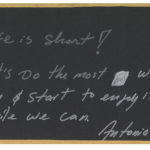 fe is short!
's Do the most w
& start to enjoy i
ile we can
Antonio